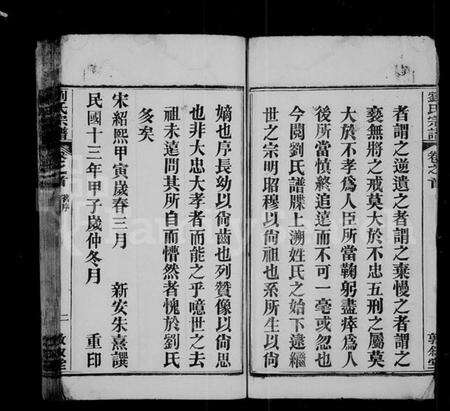 劉氏宗譜
卷之首
敦敘堂
者謂之逆遺之者謂之棄慢之者謂之
褻無將之戒莫大於不忠五刑之屬莫
大於不孝爲人臣所當鞠躬盡瘁爲人
後所當慎終追遠而不可一毫或忽也
今閱劉氏譜牒上溯姓氏之始下逮繼
世之宗明昭穆以尚祖也系所生以尚
嫡也序長幼以尚齒也列贊像以尚思
也非大忠大孝者而能之乎噫世之去
祖未遠問其所自而懵然者愧於劉氏
多矣
宋紹熙甲寅歲春三月 新安朱熹譔
民國十三年甲子歲仲冬月 重印
劉氏宗譜
卷之首
二